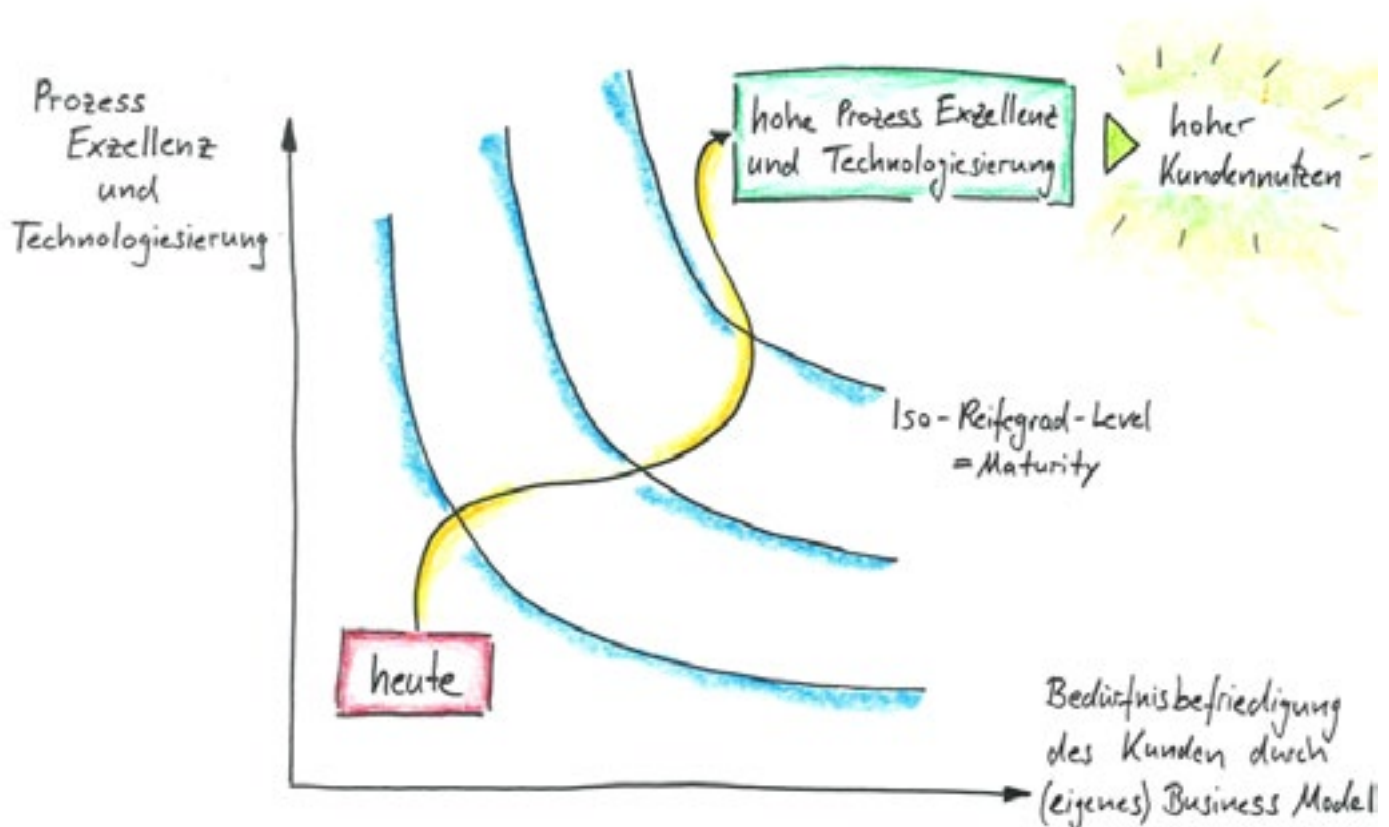 Prozess
Exzellenz
und
Technologiesierung
hohe Prozess Exzellenz
und Technologiesierung
hoher
Kundennutzen
Iso-Reifegrad-Level
= Maturity
heute
Bedürfnisbefriedigung
des Kunden durch
(eigenes) Business Model